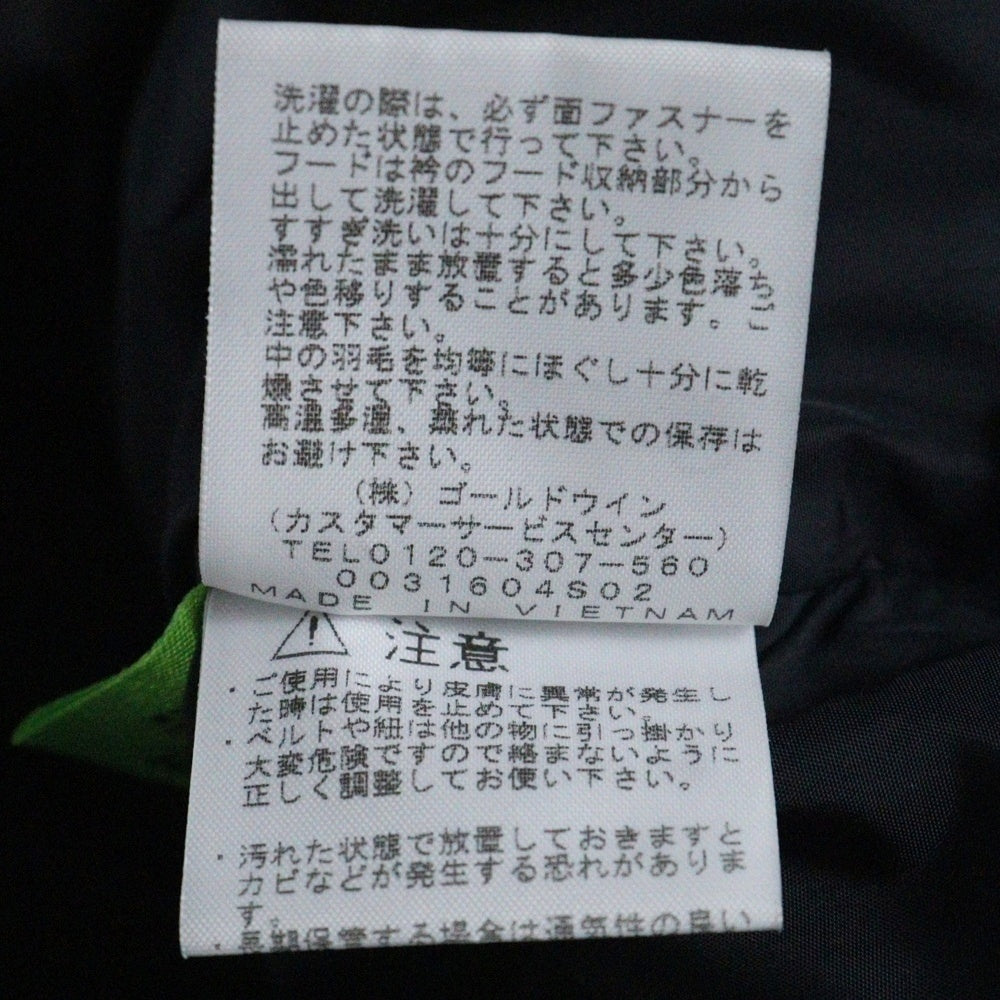 洗濯の際は、必ず面ファスナーを
止めた状態で行って下さい。
フードは衿のフード収納部分から
出して洗濯して下さい。
すすぎ洗いは十分にして下さい。
濡れたまま放置すると多少色落ち
や色移りすることがあります。ご
注意下さい。
中の羽毛を均等にほぐし十分に乾
燥させて下さい。
高温多湿、蒸れた状態での保存は
お避け下さい。
(株)ゴールドウイン
(カスタマーサービスセンター)
TEL0120-307-560
0031604S02
MADE IN VIETNAM
注意
・ご使用により皮膚に異常が発生し
た時は使用を止めて下さい。
・ベルトや紐は他の物に引っ掛かり
大変危険ですので絡まないように
正しく調整してお使い下さい。
・汚れた状態で放置しておきますと
カビなどが発生する恐れがありま
す。
・長期保管する場合は通気性の良い